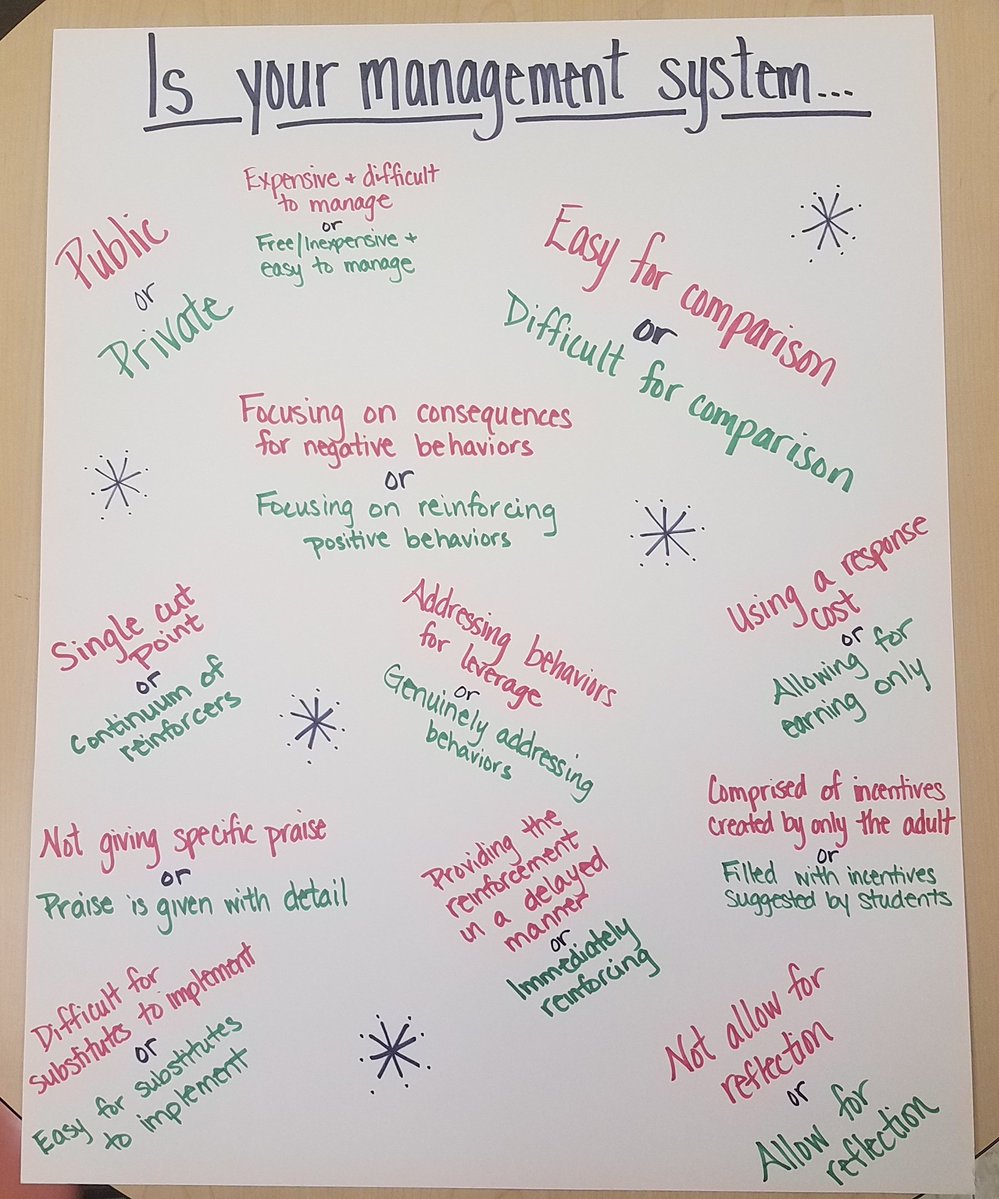 Is your management system...
Public
or
Private
Expensive + difficult
to manage
or
Free/Inexpensive +
easy to manage
Easy for comparison
or
Difficult for comparison
Focusing on consequences
for negative behaviors
or
Focusing on reinforcing
positive behaviors
Single cut
point
or
Continuum of
reinforcers
Addressing behaviors
for leverage
or
Genuinely addressing
behaviors
Using a response
cost
or
Allowing for
earning only
Not giving specific praise
or
Praise is given with detail
Providing the
reinforcement
in a delayed
manner
or
Immediately
reinforcing
Comprised of incentives
created by only the adult
or
Filled with incentives
suggested by students
Difficult for
substitutes to implement
or
Easy for substitutes
to implement
Not allow for
reflection
or
Allow for
reflection